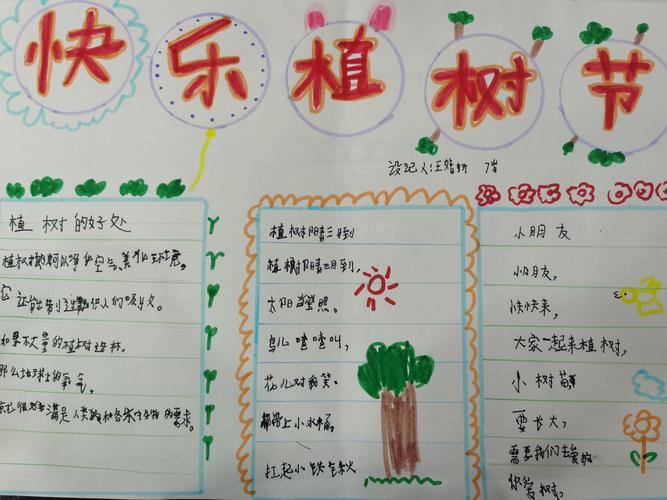 快乐植树节
设记人汪婧妍 7岁
植树的好处
植树树可以净化空气、美化环境。
它还能制造供人们吸。
如果不大量的植树造林。
那么地球上的氧气。
就很难满足人类和各种生物的需求。
植树阳春三月到
植树阳春三月到,
太阳当空照。
鸟儿喳喳叫,
花儿对我笑。
带上小水桶,
扛起小铁
小朋友
小朋友,
快快来,
大家一起来植树,
小树苗
要长大,
需要我们去爱护
你爱树。